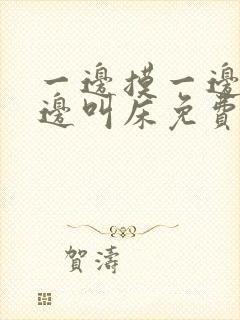 一邊摸一邊
邊叫床免費
賀濤